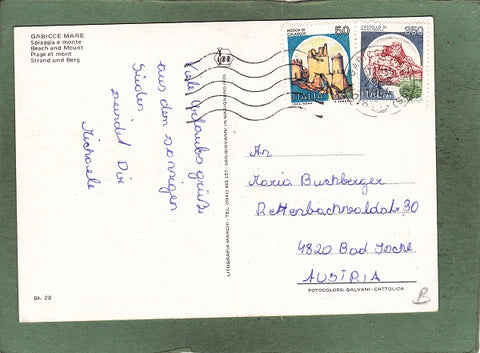 GABICCE MARE
Spiaggia e monte
Beach and Mount
Plage et mont
Strand und Berg
Viele Urlaubsgrüße
aus dem sonnigen
Süden
sendet Dir
Michaela
ga. 28
LITOGRAFIA MARCHI - TEL. (0541) 615 157 - SAN GIOVANNI IN MARIGNANO (FO)
ROCCA DI
CALASCIO
50
ITALIA
CASTELLO DI
650
ITALIA
GABICCE
An
Maria Buchberger
Rettenbachwaldstr. 30
4820 Bad Ischl
AUSTRIA
FOTOCOLORI GALVANI - CATTOLICA
B